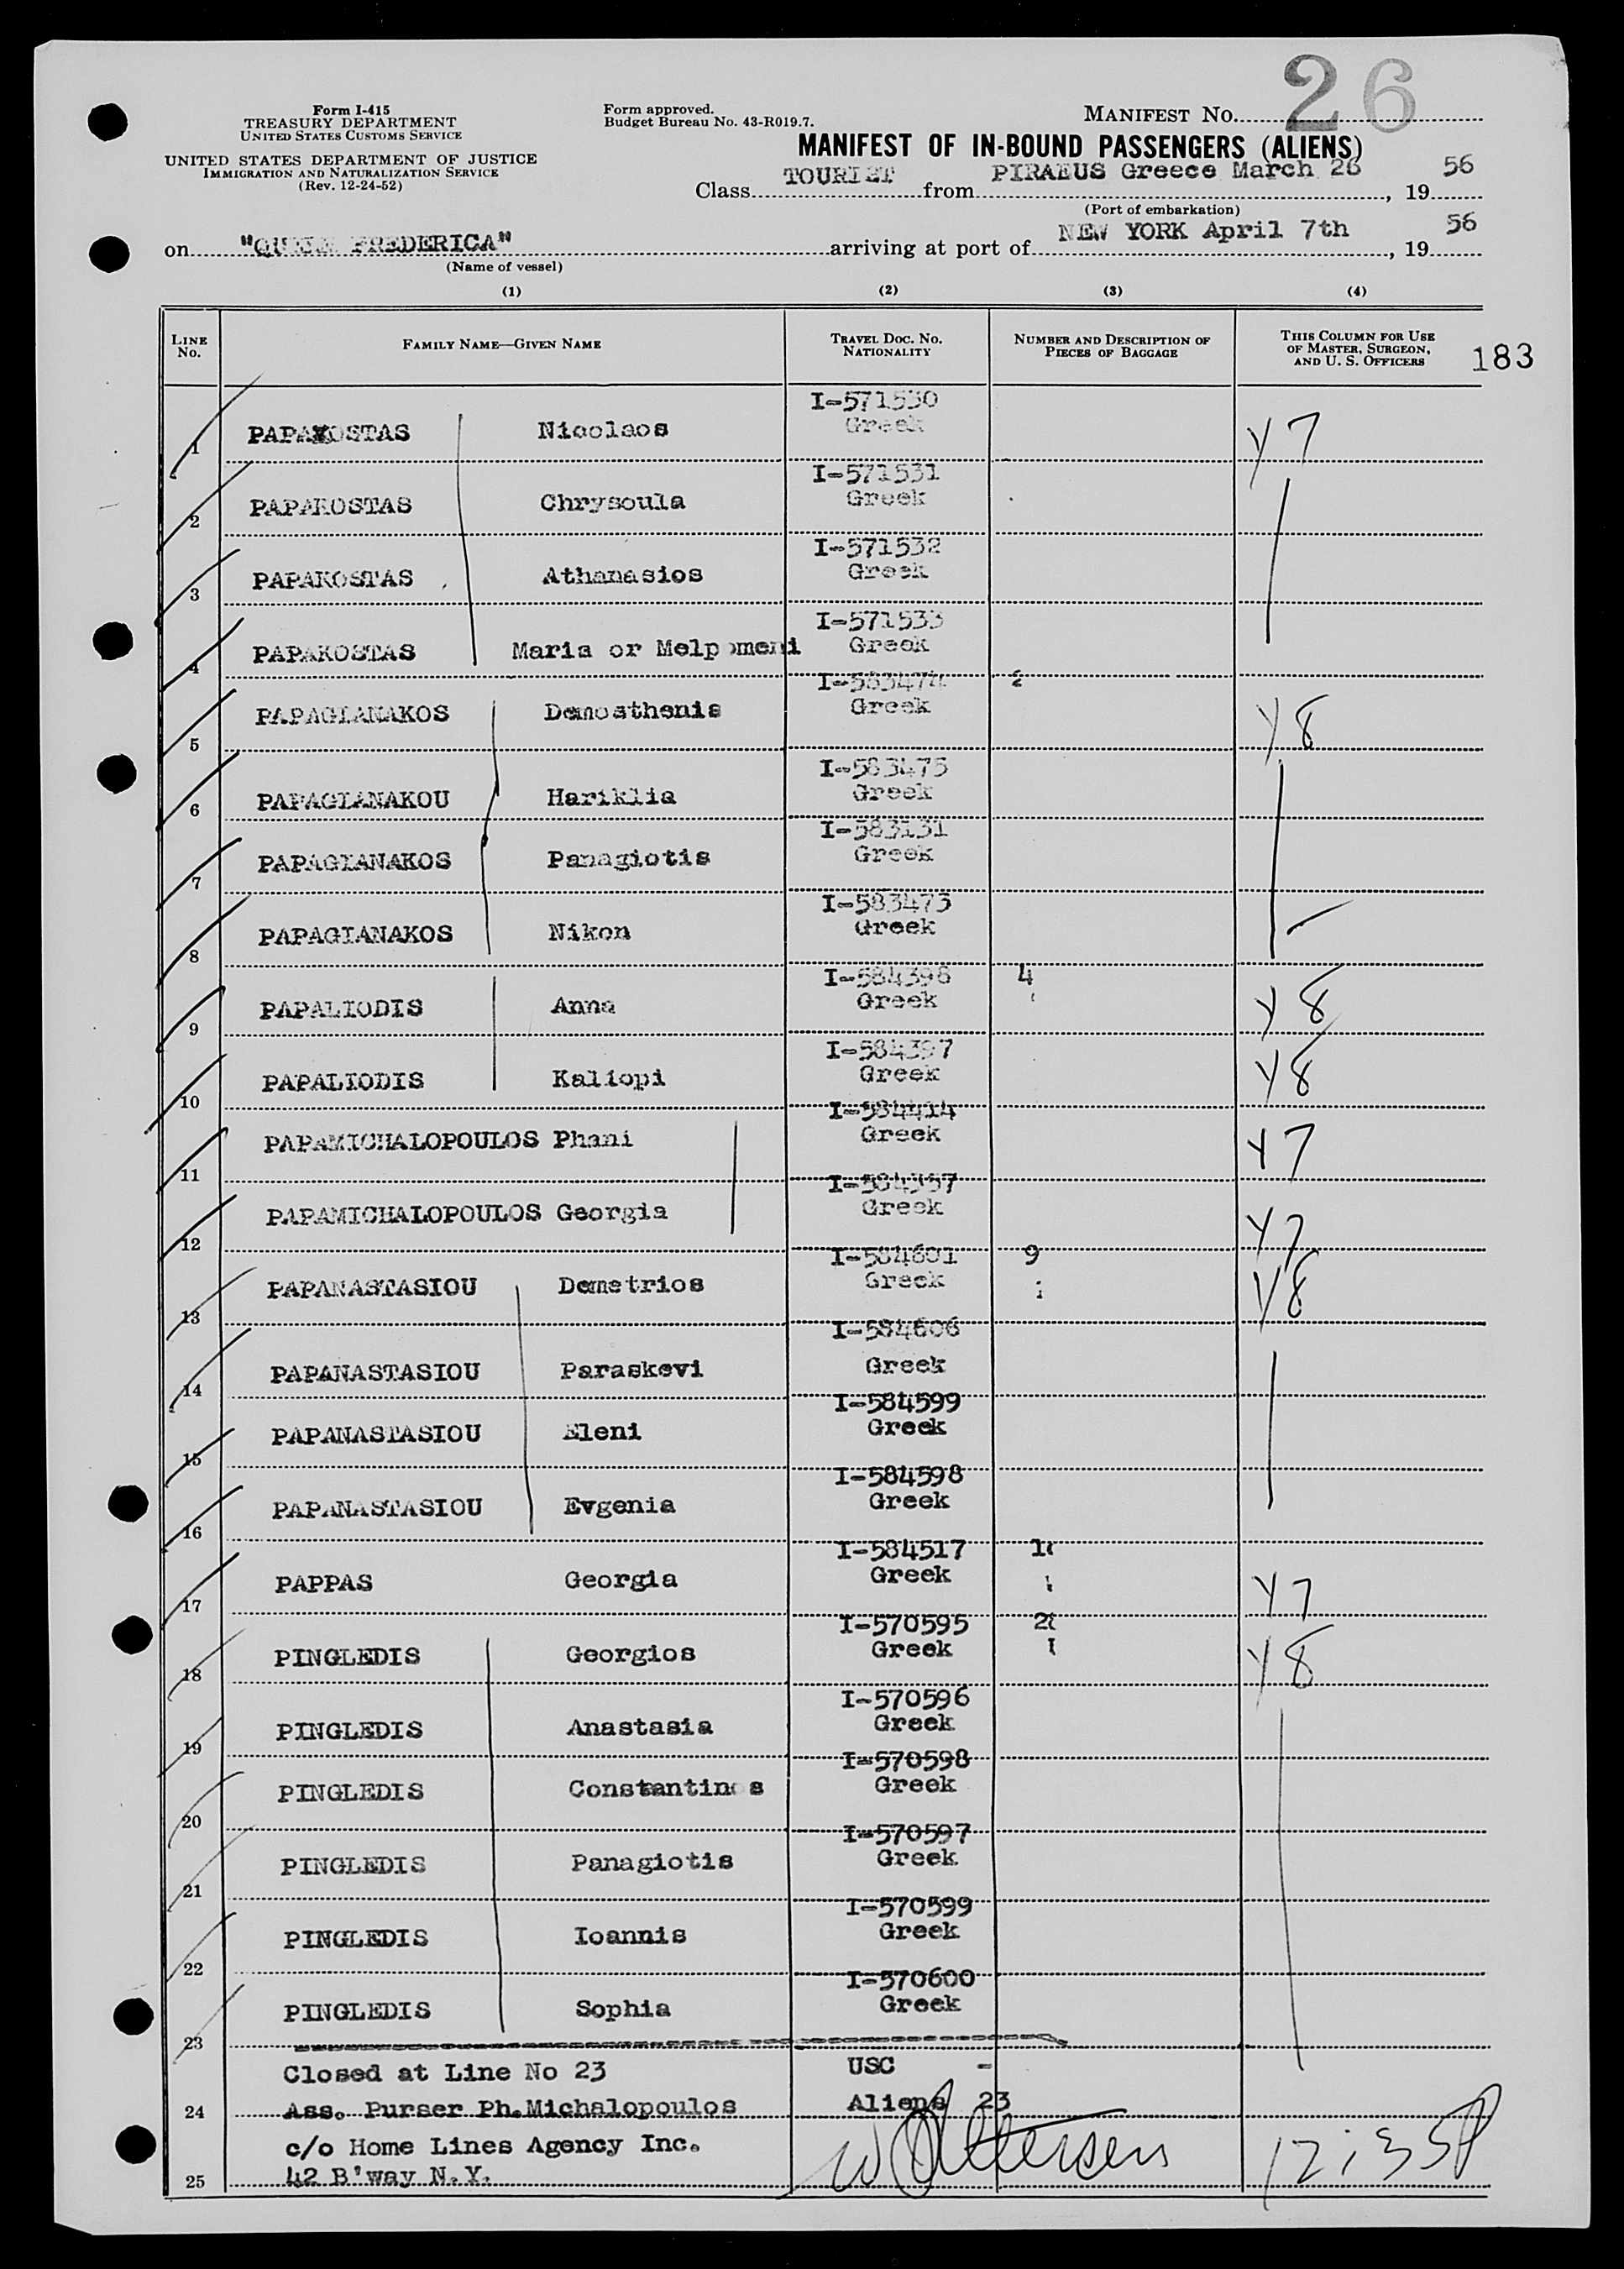 26
Form I-415
TREASURY DEPARTMENT
UNITED STATES CUSTOMS SERVICE
UNITED STATES DEPARTMENT OF JUSTICE
IMMIGRATION AND NATURALIZATION SERVICE
(Rev. 12-24-52)
Form approved.
Budget Bureau No. 43-R019.7.
MANIFEST No.
MANIFEST OF IN-BOUND PASSENGERS (ALIENS)
Class TOURIST from PIRAEUS Greece March 26, 19 56
(Port of embarkation)
on "QUEEN FREDERICA" arriving at port of NEW YORK April 7th, 19 56
(Name of vessel)
(1) (2) (3) (4)
LINE No. FAMILY NAME—GIVEN NAME TRAVEL DOC. No. NATIONALITY NUMBER AND DESCRIPTION OF PIECES OF BAGGAGE THIS COLUMN FOR USE OF MASTER, SURGEON, AND U. S. OFFICERS
183
I-571530
1 PAPAKOSTAS Nicolaos Greek Y7
I-571531
2 PAPAKOSTAS Chrysoula Greek
I-571532
3 PAPAKOSTAS Athanasios Greek
I-571533
4 PAPAKOSTAS Maria or Melpomeni Greek
I-583474
5 PAPAGIANAKOS Demosthenis Greek Y8
I-583475
6 PAPAGIANAKOU Hariklia Greek
I-583131
7 PAPAGIANAKOS Panagiotis Greek
I-583473
8 PAPAGIANAKOS Nikon Greek
I-584398 4
9 PAPALIODIS Anna Greek Y8
I-584397
10 PAPALIODIS Kaliopi Greek Y8
I-584414
11 PAPAMICHALOPOULOS Phani Greek Y7
I-584357
12 PAPAMICHALOPOULOS Georgia Greek Y7
I-584601 9
13 PAPANASTASIOU Demetrios Greek Y8
I-584606
14 PAPANASTASIOU Paraskevi Greek
I-584599
15 PAPANASTASIOU Eleni Greek
I-584598
16 PAPANASTASIOU Evgenia Greek
I-584517
17 PAPPAS Georgia Greek Y7
I-570595
18 PINGLEDIS Georgios Greek Y8
I-570596
19 PINGLEDIS Anastasia Greek
I-570598
20 PINGLEDIS Constantinos Greek
I-570597
21 PINGLEDIS Panagiotis Greek
I-570599
22 PINGLEDIS Ioannis Greek
I-570600
23 PINGLEDIS Sophia Greek
Closed at Line No 23 USC -
24 Ass. Purser Ph.Michalopoulos Aliens 23
c/o Home Lines Agency Inc. 12:35P
25 42 B'way N.Y.